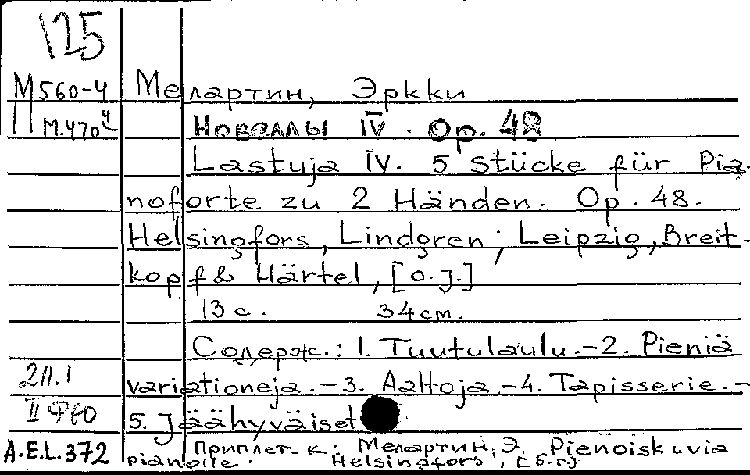 125
M560-4 Мелартин, Эркки
M.470 4 Новеллы IV. Op. 48
Lastuja IV. 5 Stücke für Pia-
noforte zu 2 Händen. Op. 48.
Helsingfors, Lindgren; Leipzig, Breit-
kopf & Härtel, [o.j.]
13 с. 34 см.
Содерж.: 1. Tuutulaulu.-2. Pieniä
2Л.1 variationeja.-3. Aaltoja.-4. Tapisserie.-
II ФЮ 5. Jäähyväiset.
A.E.L.372 Приплет. к: Мелартин, Э. Pienois kuvia
Helsingfors,